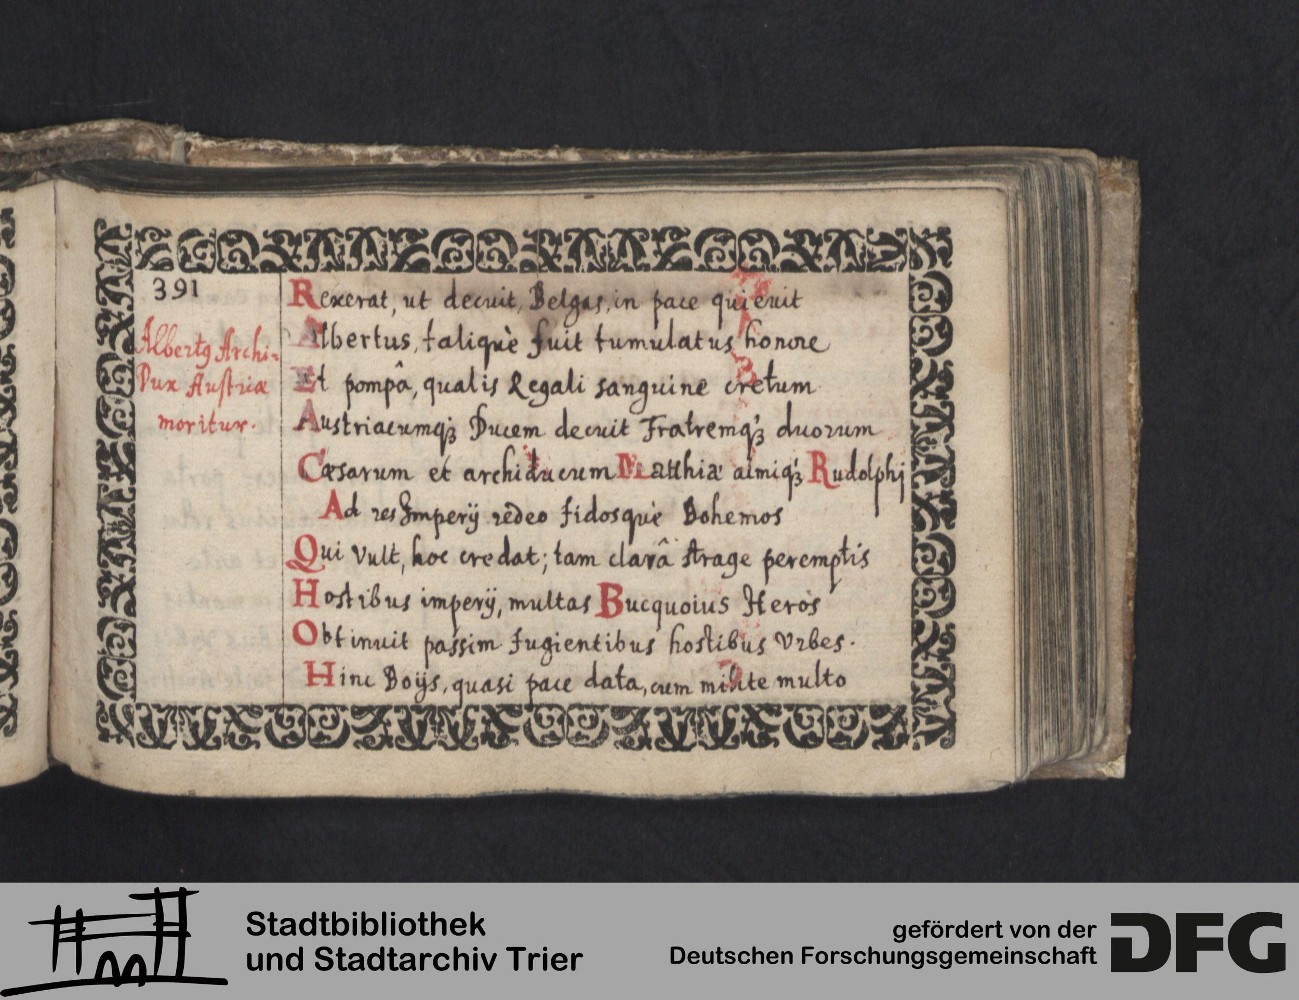 391
Albertꝰ Archi-
Dux Austriæ
moritur.
Rexerat, ut decuit, Belgas, in pace quievit
Albertus, taliquè fuit tumulatus honore
Et pompâ, qualis Regali sanguine cretum
Austriacumqꝫ Ducem decuit Fratremqꝫ duorum
Cæsarum et archiducum Matthiæ almiqꝫ Rudolphj
Ad res Imperÿ redeo fidosquè Bohemos
Qui vult, hoc credat; tam clarâ strage peremptis
Hostibus imperÿ, multas Bucquoius Heros
Obtinuit passim fugientibus hostibus Urbes.
Hinc Boÿs, quasi pace data, cum milite multo
Stadtbibliothek
und Stadtarchiv Trier
gefördert von der
Deutschen Forschungsgemeinschaft
DFG